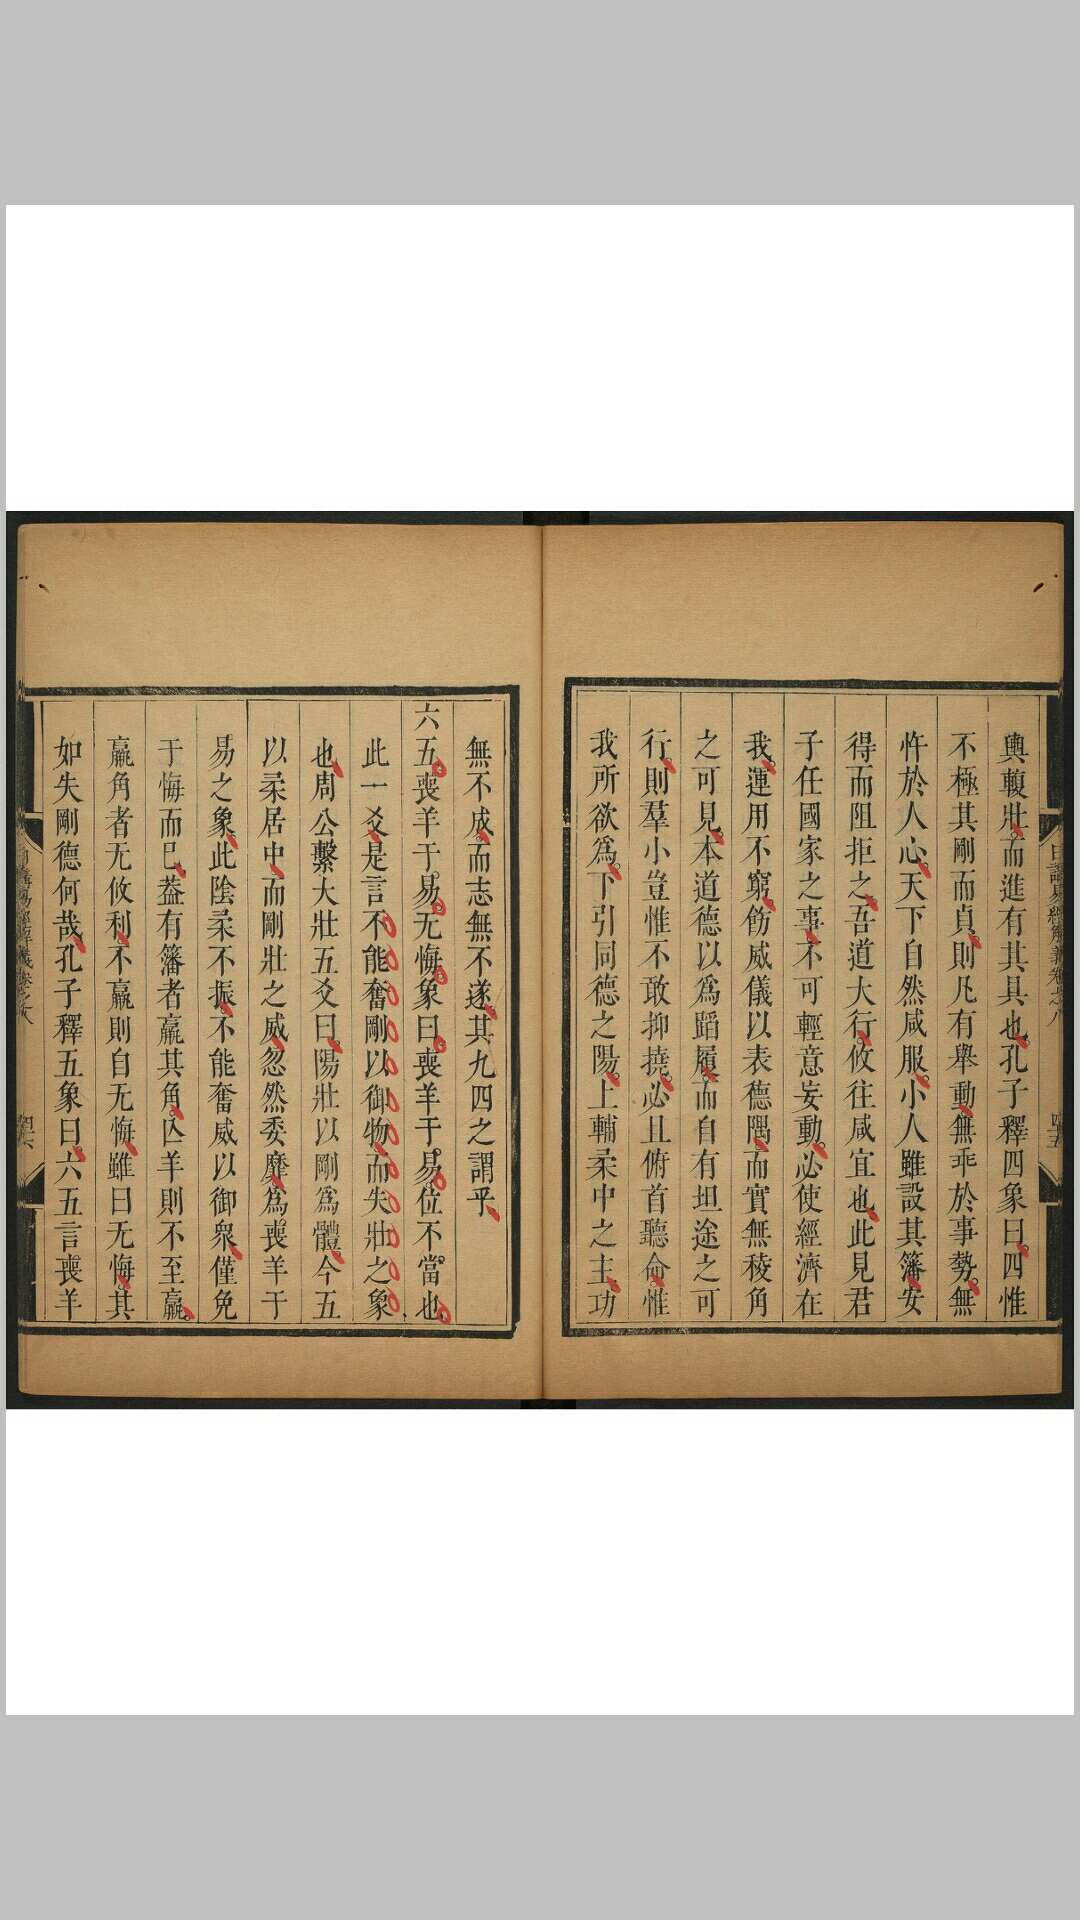 輿輹壯而進有其具也孔子釋四象曰四惟
不極其剛而貞則凡有舉動無乖於事勢無
忤於人心天下自然咸服小人雖設其籓安
得而阻拒之吾道大行攸往咸宜也此見君
子任國家之事不可輕意妄動必使經濟在
我運用不窮飭威儀以表德隅而實無稜角
之可見本道德以爲蹈履而自有坦途之可
行則羣小豈惟不敢抑撓必且俯首聽命惟
我所欲爲下引同德之陽上輔柔中之主功
日講易經解義卷之八 四五
無不成而志無不遂其九四之謂乎
六五喪羊于易无悔象曰喪羊于易位不當也
此一爻是言不能奮剛以御物而失壯之象
也周公繫大壯五爻曰陽壯以剛爲體今五
以柔居中而剛壯之威忽然委靡爲喪羊于
易之象此陰柔不振不能奮威以御衆僅免
于悔而巳葢有籓者羸其角亾羊則不至羸
羸角者无攸利不羸則自无悔雖曰无悔其
如失剛德何哉孔子釋五象曰六五言喪羊
日講易經解義卷之八 四六